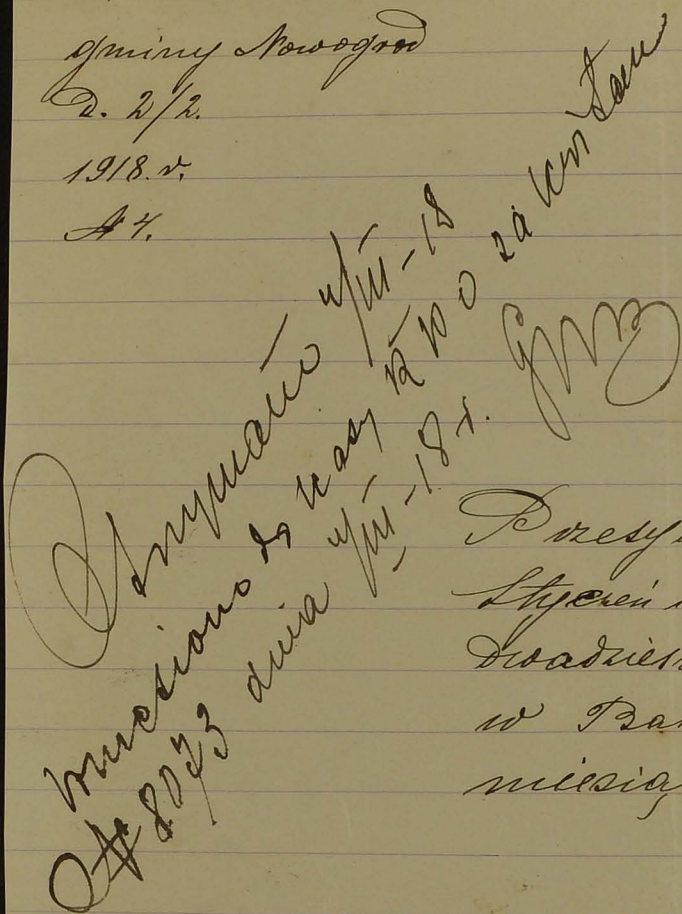 gminy Nowogród
D. 2/2.
1918. r.
№ 4.
Otrzymano 4/III-18
wniesiono do kasy R 10 0 za kwitem
№ 8073 dnia 4/III-18 r.
Przesy
Styczeń
dwadzies
w Ba
miesią